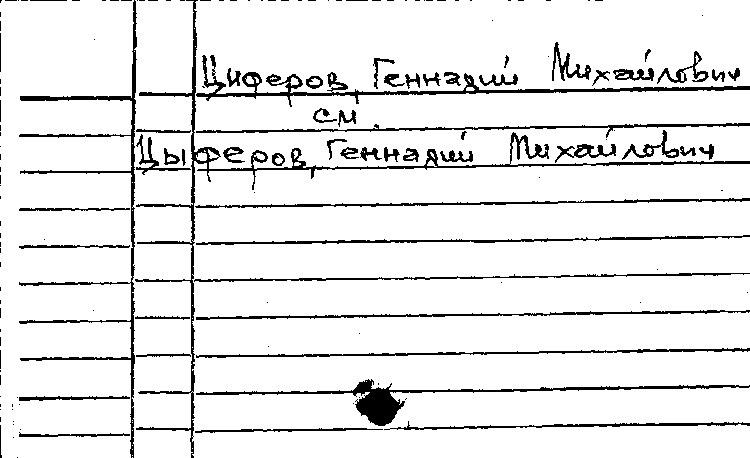 Циферов, Геннадий Михайлович
см.
Цыферов, Геннадий Михайлович